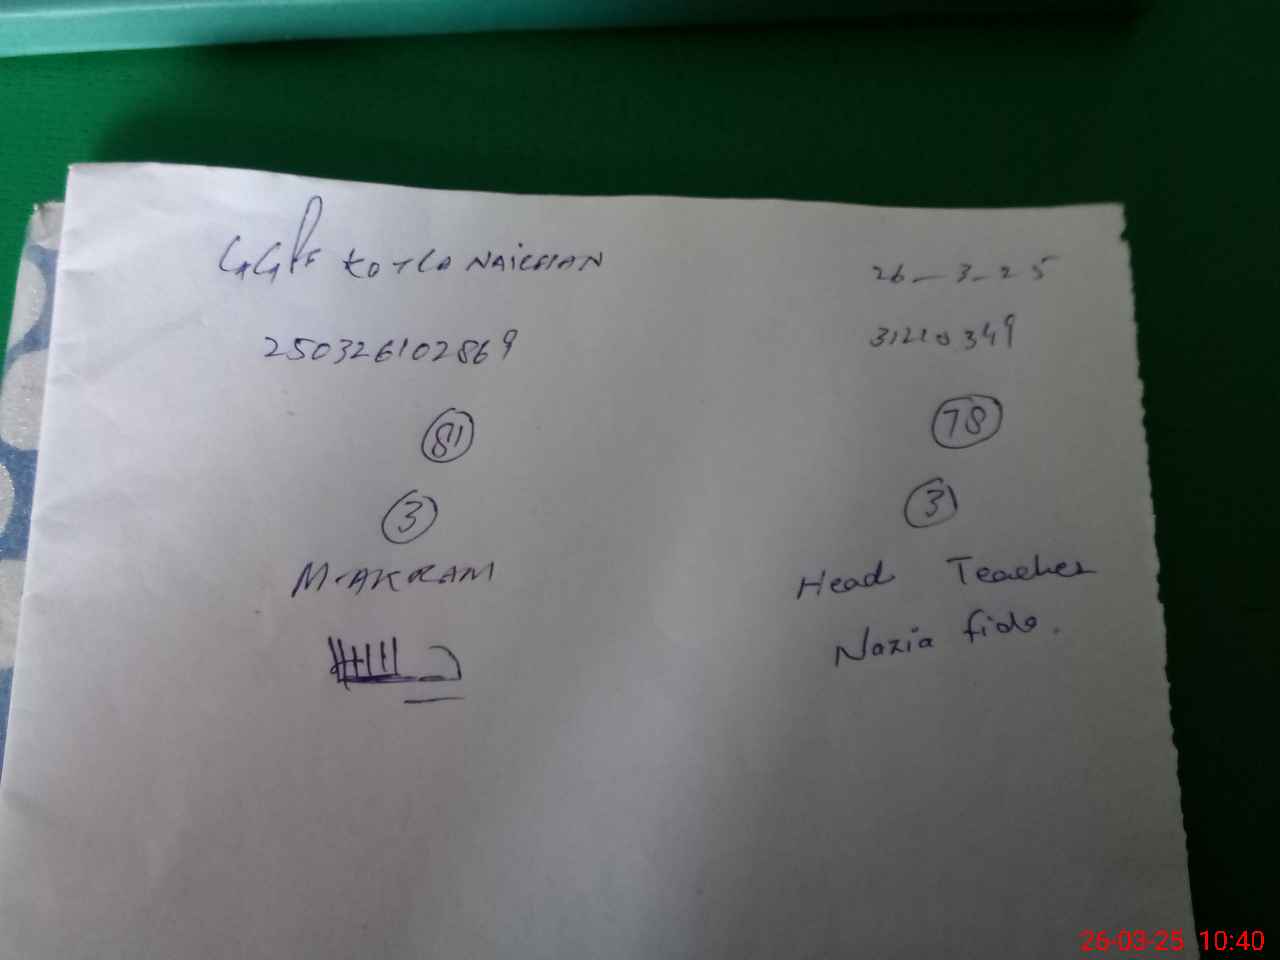 GGPS Kotla NAICHAN
26-3-25
250326102869
31210349
81
78
3
3
M-AKRAM
Head Teacher
Nazia fida.
26-03-25 10:40